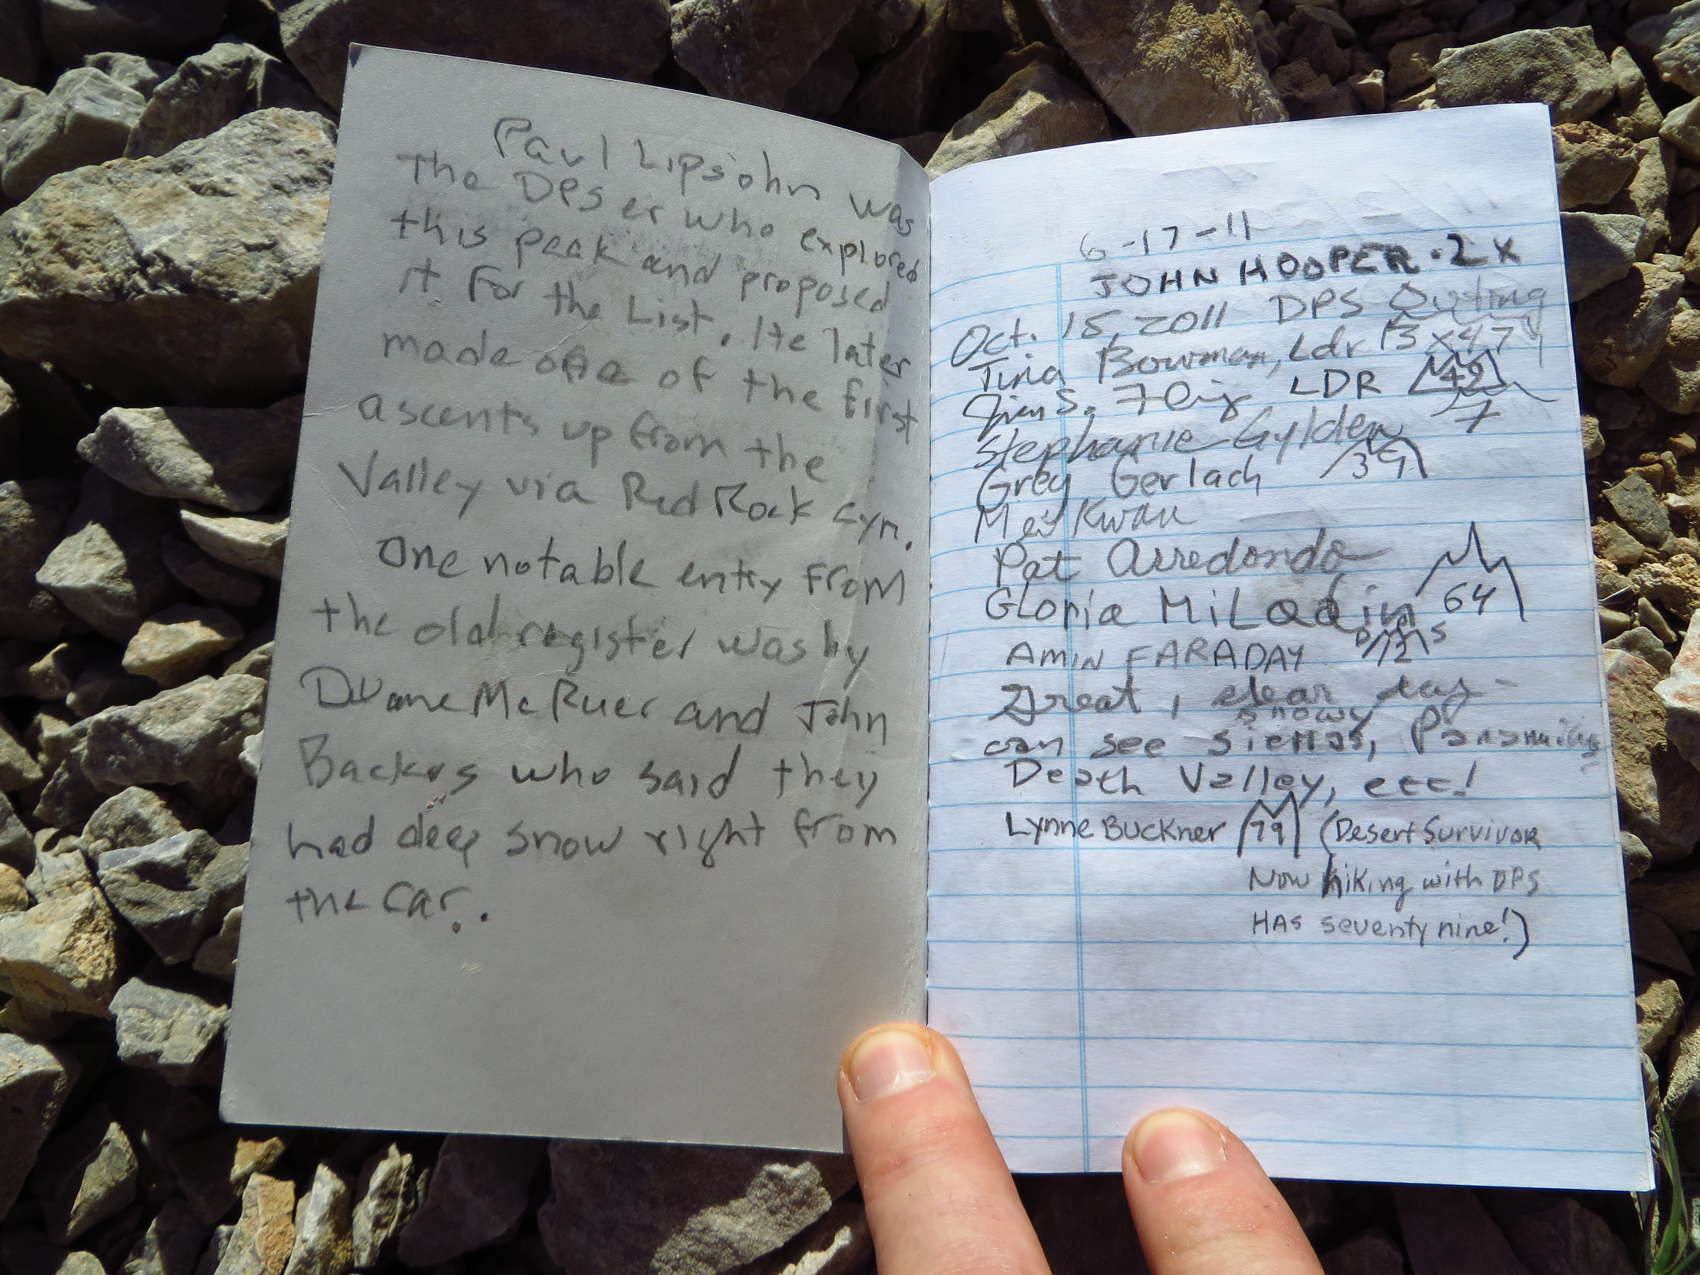 Paul Lipsohn was
The DPSer who explored
this peak and proposed
it for the List. He later
made one of the first
ascents up from the
Valley via Red Rock cyn.
One notable entry from
the old register was by
Duane McRuer and John
Backus who said they
had deep snow right from
the car.
6-17-11
JOHN HOOPER · 2X
Oct. 15, 2011 DPS Outing
Tina Bowman, Ldr
Jim S. LDR 42
Stephanie Gylden 7
Greg Gerlach 39
Mei Kwan
Pat Arredondo
Gloria Miladin 64
AMIN FARADAY
Great, clear day -
snowy
can see Sierras, Panamints
Death Valley, etc!
Lynne Buckner 79 (Desert Survivor
Now hiking with DPS
HAS seventy nine!)